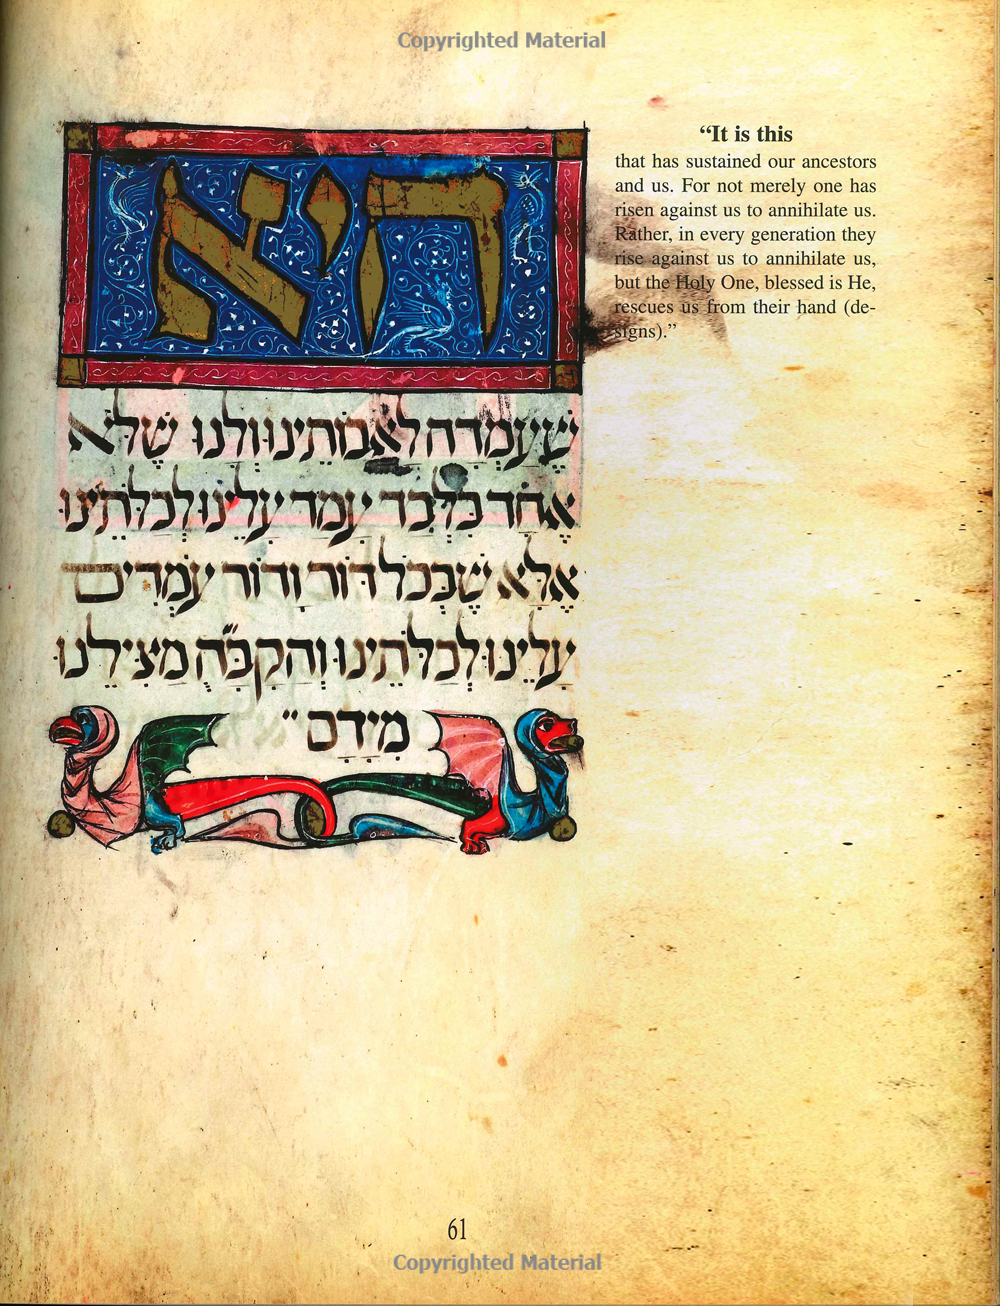 Copyrighted Material
היא
שֶׁעָמְדָה לַאֲבֹתֵינוּ וְלָנוּ שֶׁלֹּא
אֶחָד בִּלְבָד עָמַד עָלֵינוּ לְכַלֹּתֵינוּ
אֶלָּא שֶׁבְּכָל דּוֹר וָדוֹר עֹמְדִים
עָלֵינוּ לְכַלֹּתֵינוּ וְהַקָּבָּ״ה מַצִּילֵנוּ
מִיָּדָם״
“It is this
that has sustained our ancestors
and us. For not merely one has
risen against us to annihilate us.
Rather, in every generation they
rise against us to annihilate us,
but the Holy One, blessed is He,
rescues us from their hand (de-
signs).”
61
Copyrighted Material